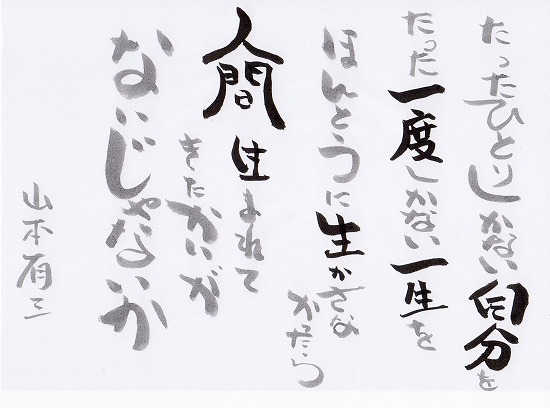 たったひとりしかない自分を
たった一度しかない一生を
ほんとうに生かさな
かったら
人間生まれて
きたかいが
ないじゃないか
山本有三